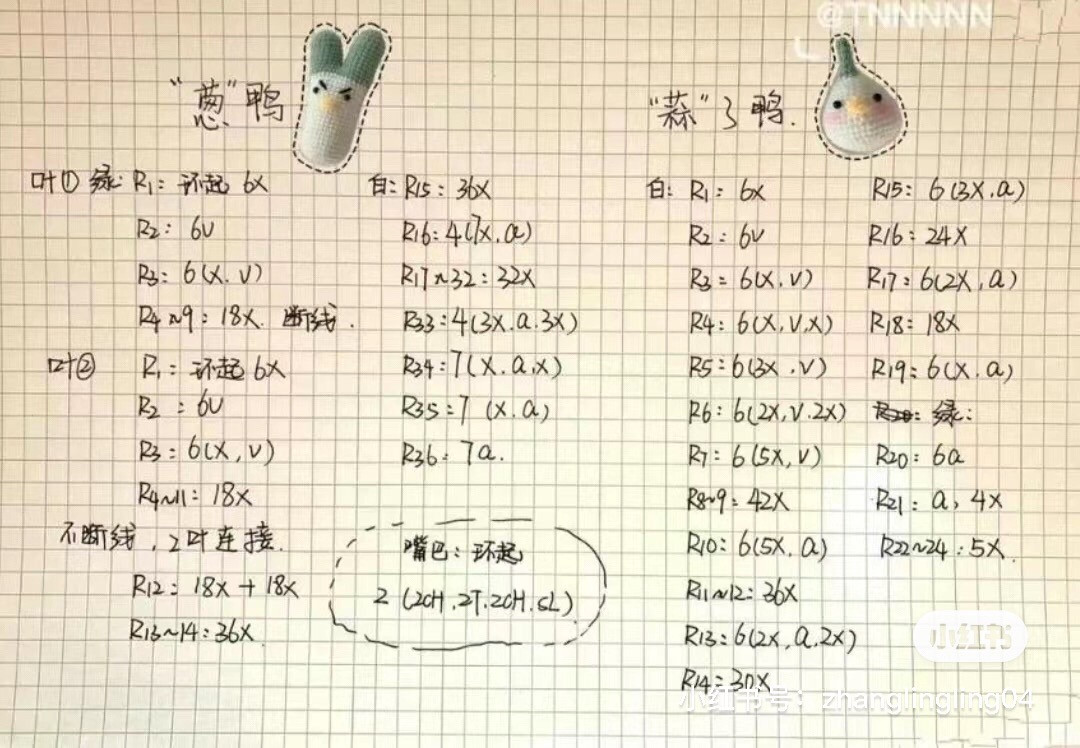 @TNNNNN
“葱”鸭
叶① 绿: R1: 环起 6X
R2: 6V
R3: 6(X.V)
R4~9: 18X. 断线.
叶② R1: 环起 6X
R2: 6V
R3: 6(X,V)
R4~11: 18X
不断线, 2叶连接.
R12: 18X + 18X
R13~14: 36X.
白: R15: 36X
R16: 4(7X.a)
R17~32: 32X
R33: 4(3X.a.3X)
R34: 7(X.a.X)
R35: 7 (X.a)
R36: 7a.
嘴巴: 环起
2 (2CH.2T.2CH.SL)
“蒜”了鸭.
白: R1: 6X
R2: 6V
R3: 6(X.V)
R4: 6(X,V,X)
R5: 6(3X,V)
R6: 6(2X,V.2X)
R7: 6(5X,V)
R8~9: 42X
R10: 6(5X,a)
R11~12: 36X
R13: 6(2X,a.2X)
R14: 30X
R15: 6(3X.a)
R16: 24X
R17: 6(2X,a)
R18: 18X
R19: 6(X.a)
绿:
R20: 6a
R21: a, 4X
R22~24: 5X.
小红书
小红书号: zhanglingling04